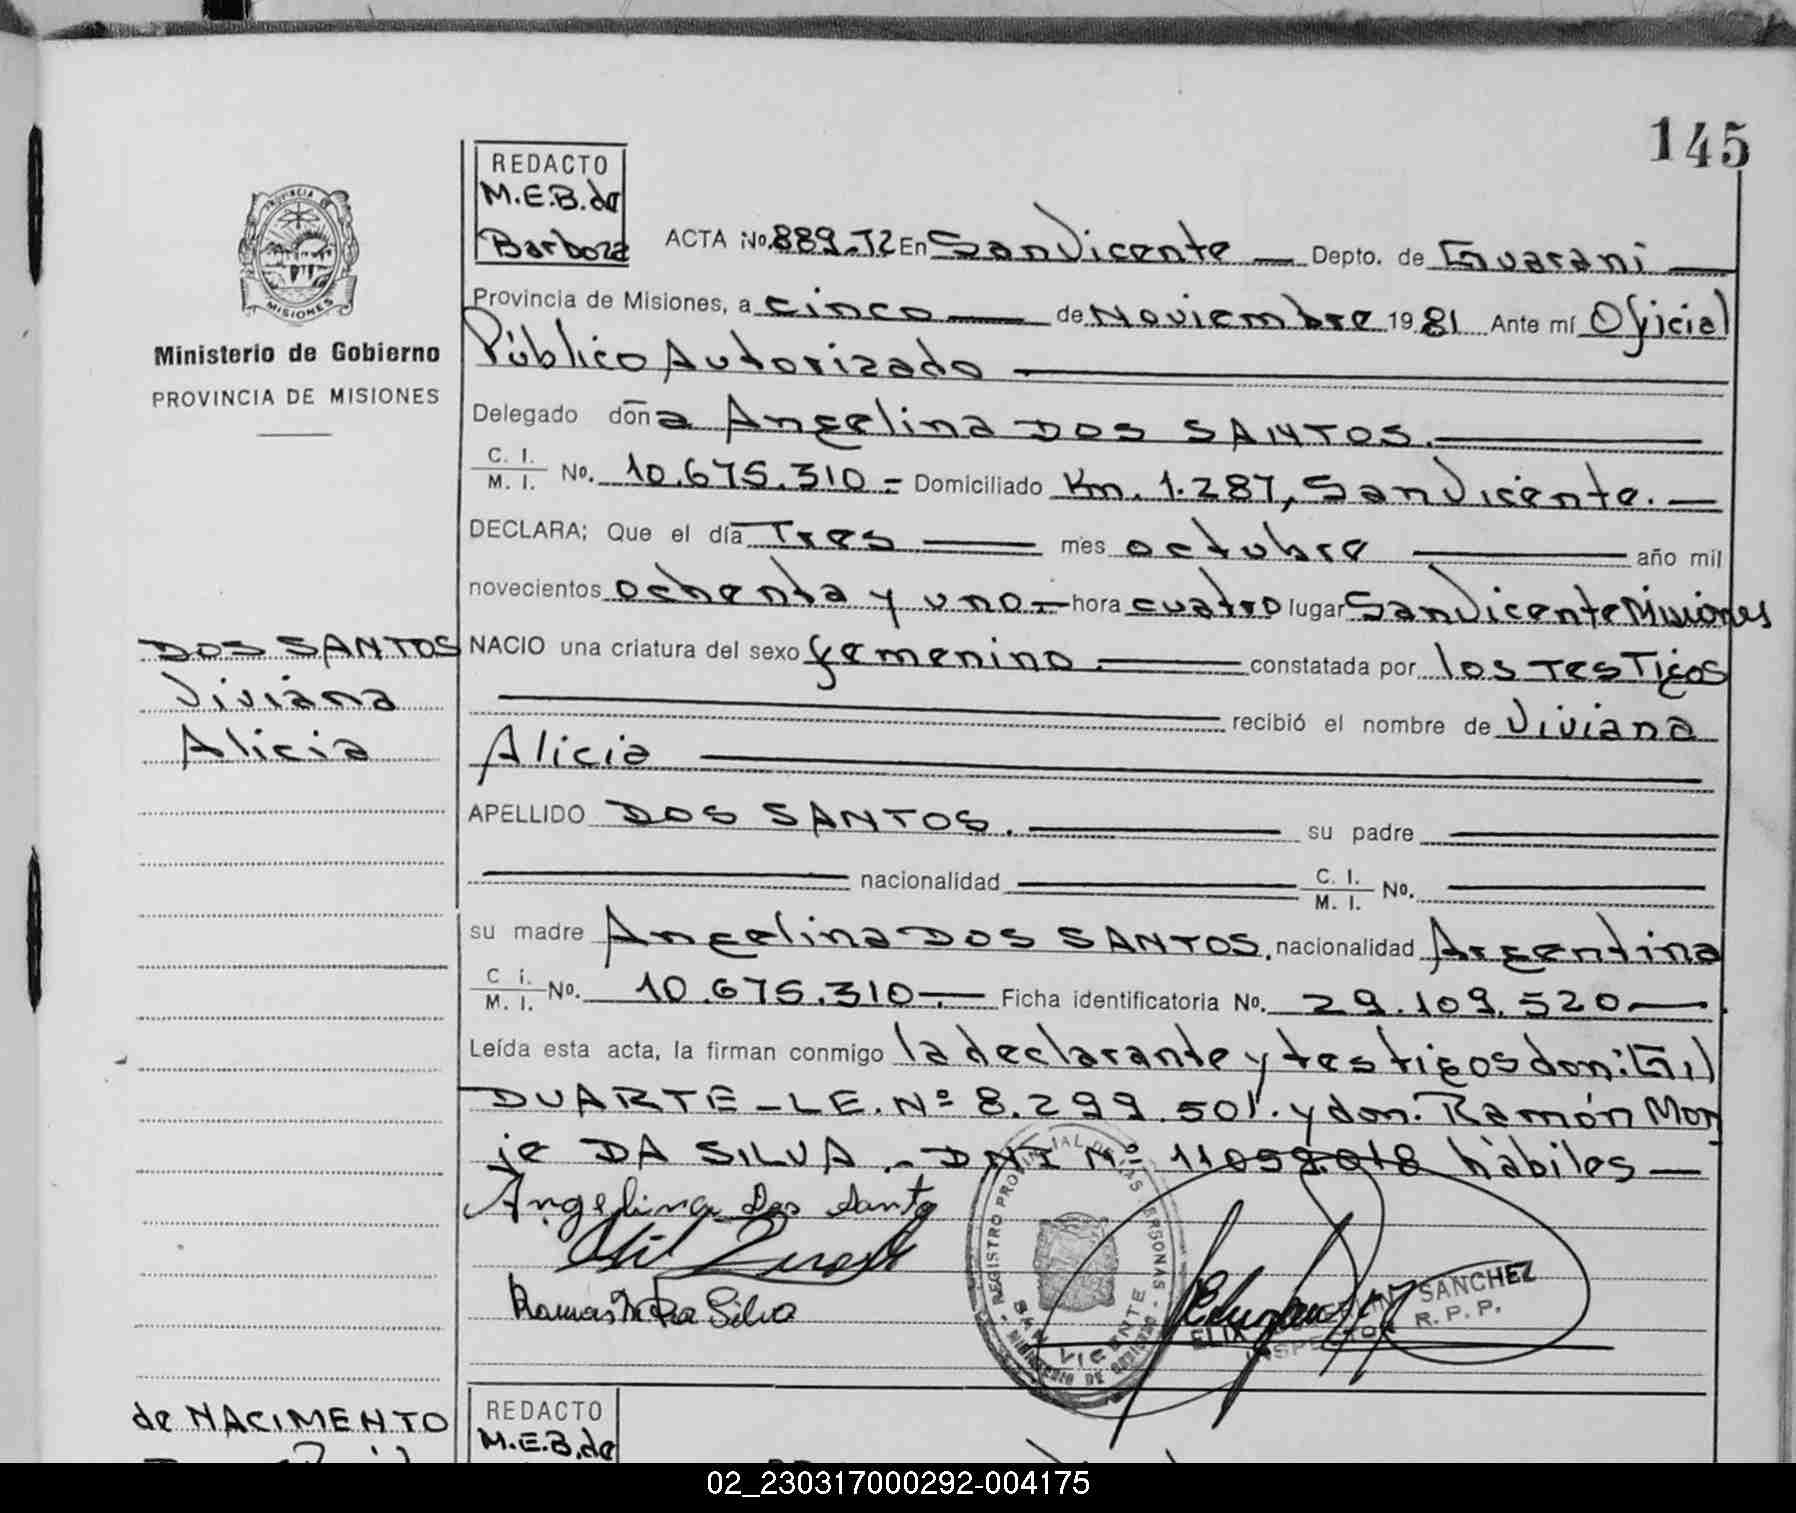 145
REDACTO
M.E.B. de
Barboza
PROVINCIA DE
MISIONES
Ministerio de Gobierno
PROVINCIA DE MISIONES
ACTA No. 889.T2 En San Vicente — Depto. de Guarani —
Provincia de Misiones, a cinco — de Noviembre 1981 Ante mí Oficial
Público Autorizado —
Delegado doña Angelina DOS SANTOS. —
C. I.
M. I. No. 10.675.310 = Domiciliado Km. 1.287, San Vicente. —
DECLARA; Que el día Tres — mes octubre — año mil
novecientos ochenta y uno. — hora cuatro lugar San Vicente Misiones
NACIO una criatura del sexo femenino. — constatada por los Testigos
— recibió el nombre de Viviana
Alicia —
APELLIDO DOS SANTOS. — su padre —
— nacionalidad — C. I.
M. I. No. —
su madre Angelina DOS SANTOS, nacionalidad Argentina
C. i.
M. I. No. 10.675.310. — Ficha identificatoria No. 29.109.520 —
Leída esta acta, la firman conmigo la declarante y testigos don: Gil
DUARTE – L.E. Nº 8.299.501. y don. Ramón Mon
je DA SILVA. – DNI Nº hábiles —
DOS SANTOS
Viviana
Alicia
Angelina Dos Santo
Silva
REGISTRO PROVINCIAL DE LAS PERSONAS
SAN VICENTE
MINISTERIO DE GOBIERNO
SANCHEZ
INSPECTOR R. P. P.
de NACIMENTO
REDACTO
M.E.B. de
02_230317000292-004175